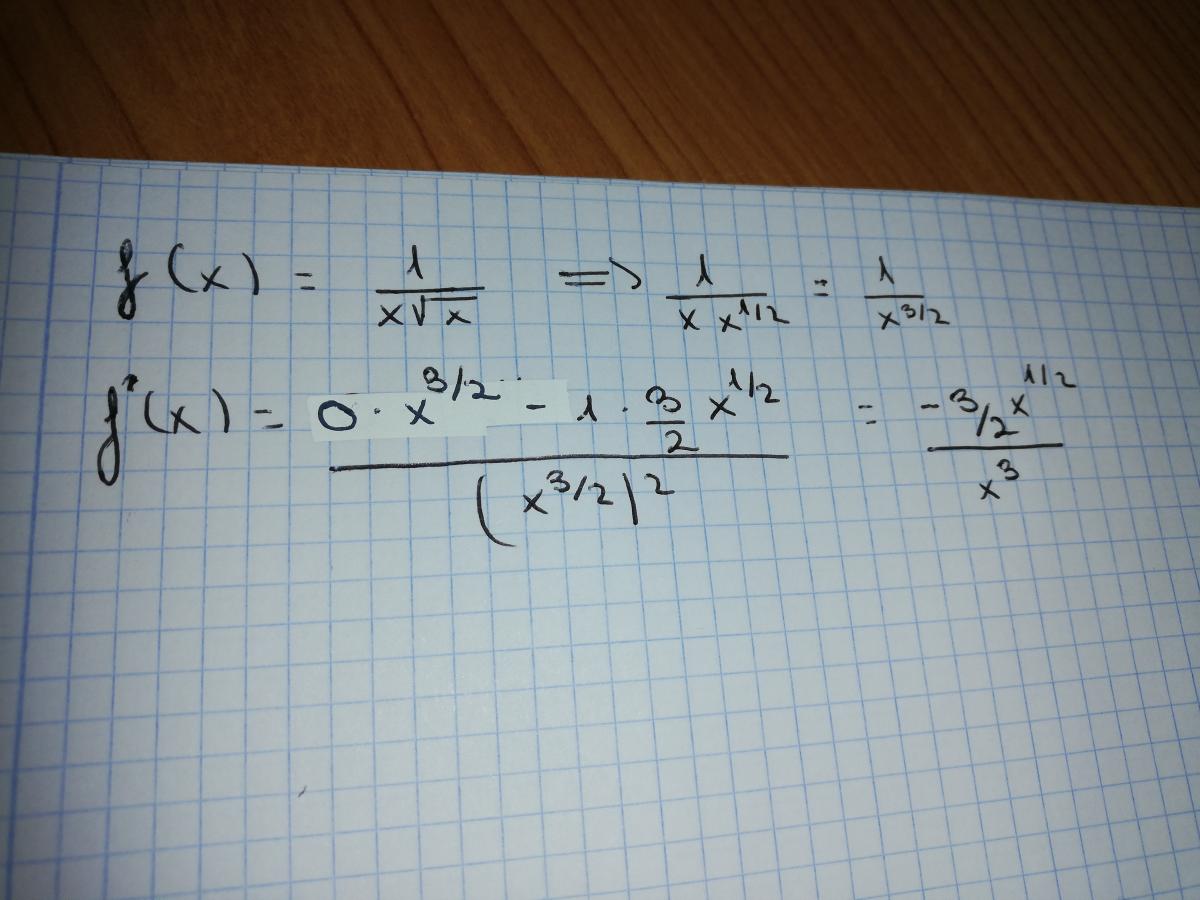 f(x) = 1/(x√x) => 1/(x x^(1/2)) = 1/x^(3/2)
f'(x) = (0 · x^(3/2) - 1 · 3/2 x^(1/2))/(x^(3/2))^2 = (-3/2 x^(1/2))/x^3